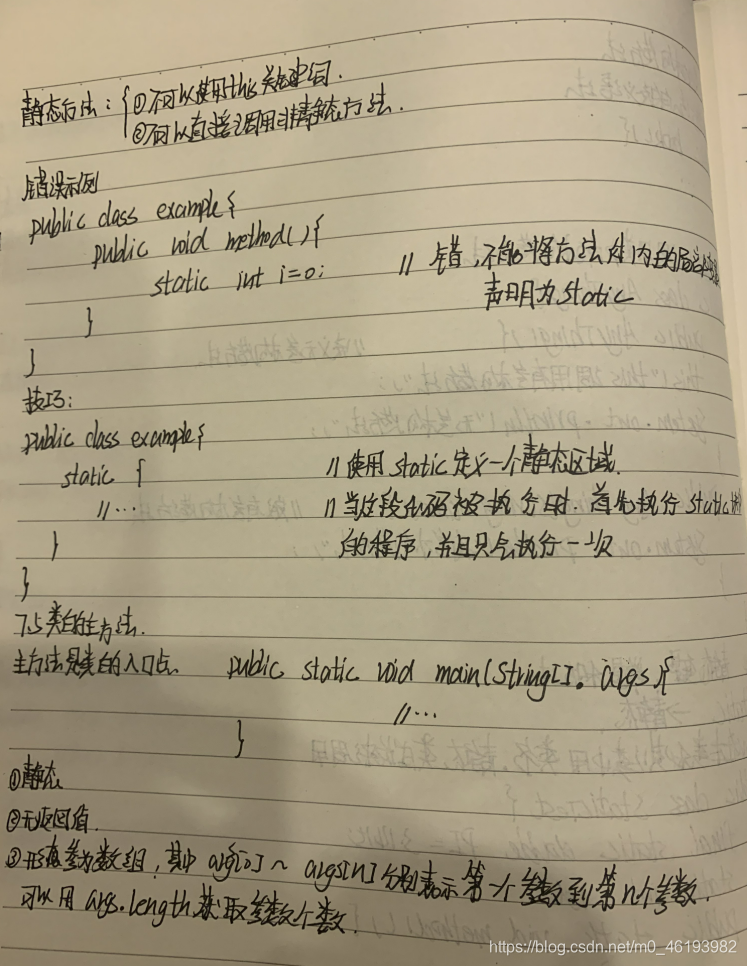 静态方法：{①不可以使用this关键词.
②不可以直接调用非静态方法.
错误示例
public class example{
public void method(){
static int i=0; // 错,不能将方法体内的局部变量
声明为static
}
}
技巧:
public class example{
static { // 使用static定义一个静态区域.
//... // 当这段代码被执行时.首先执行static块
} 的程序,并且只会执行一次
}
7.5 类的主方法.
主方法是类的入口点. public static void main(String[]. args){
//...
}
①静态
②无返回值.
③形参为数组,其中 arg[0] ~ args[n]分别表示第一个参数到第n个参数.
可以用 args.length获取参数个数.
https://blog.csdn.net/m0_46193982